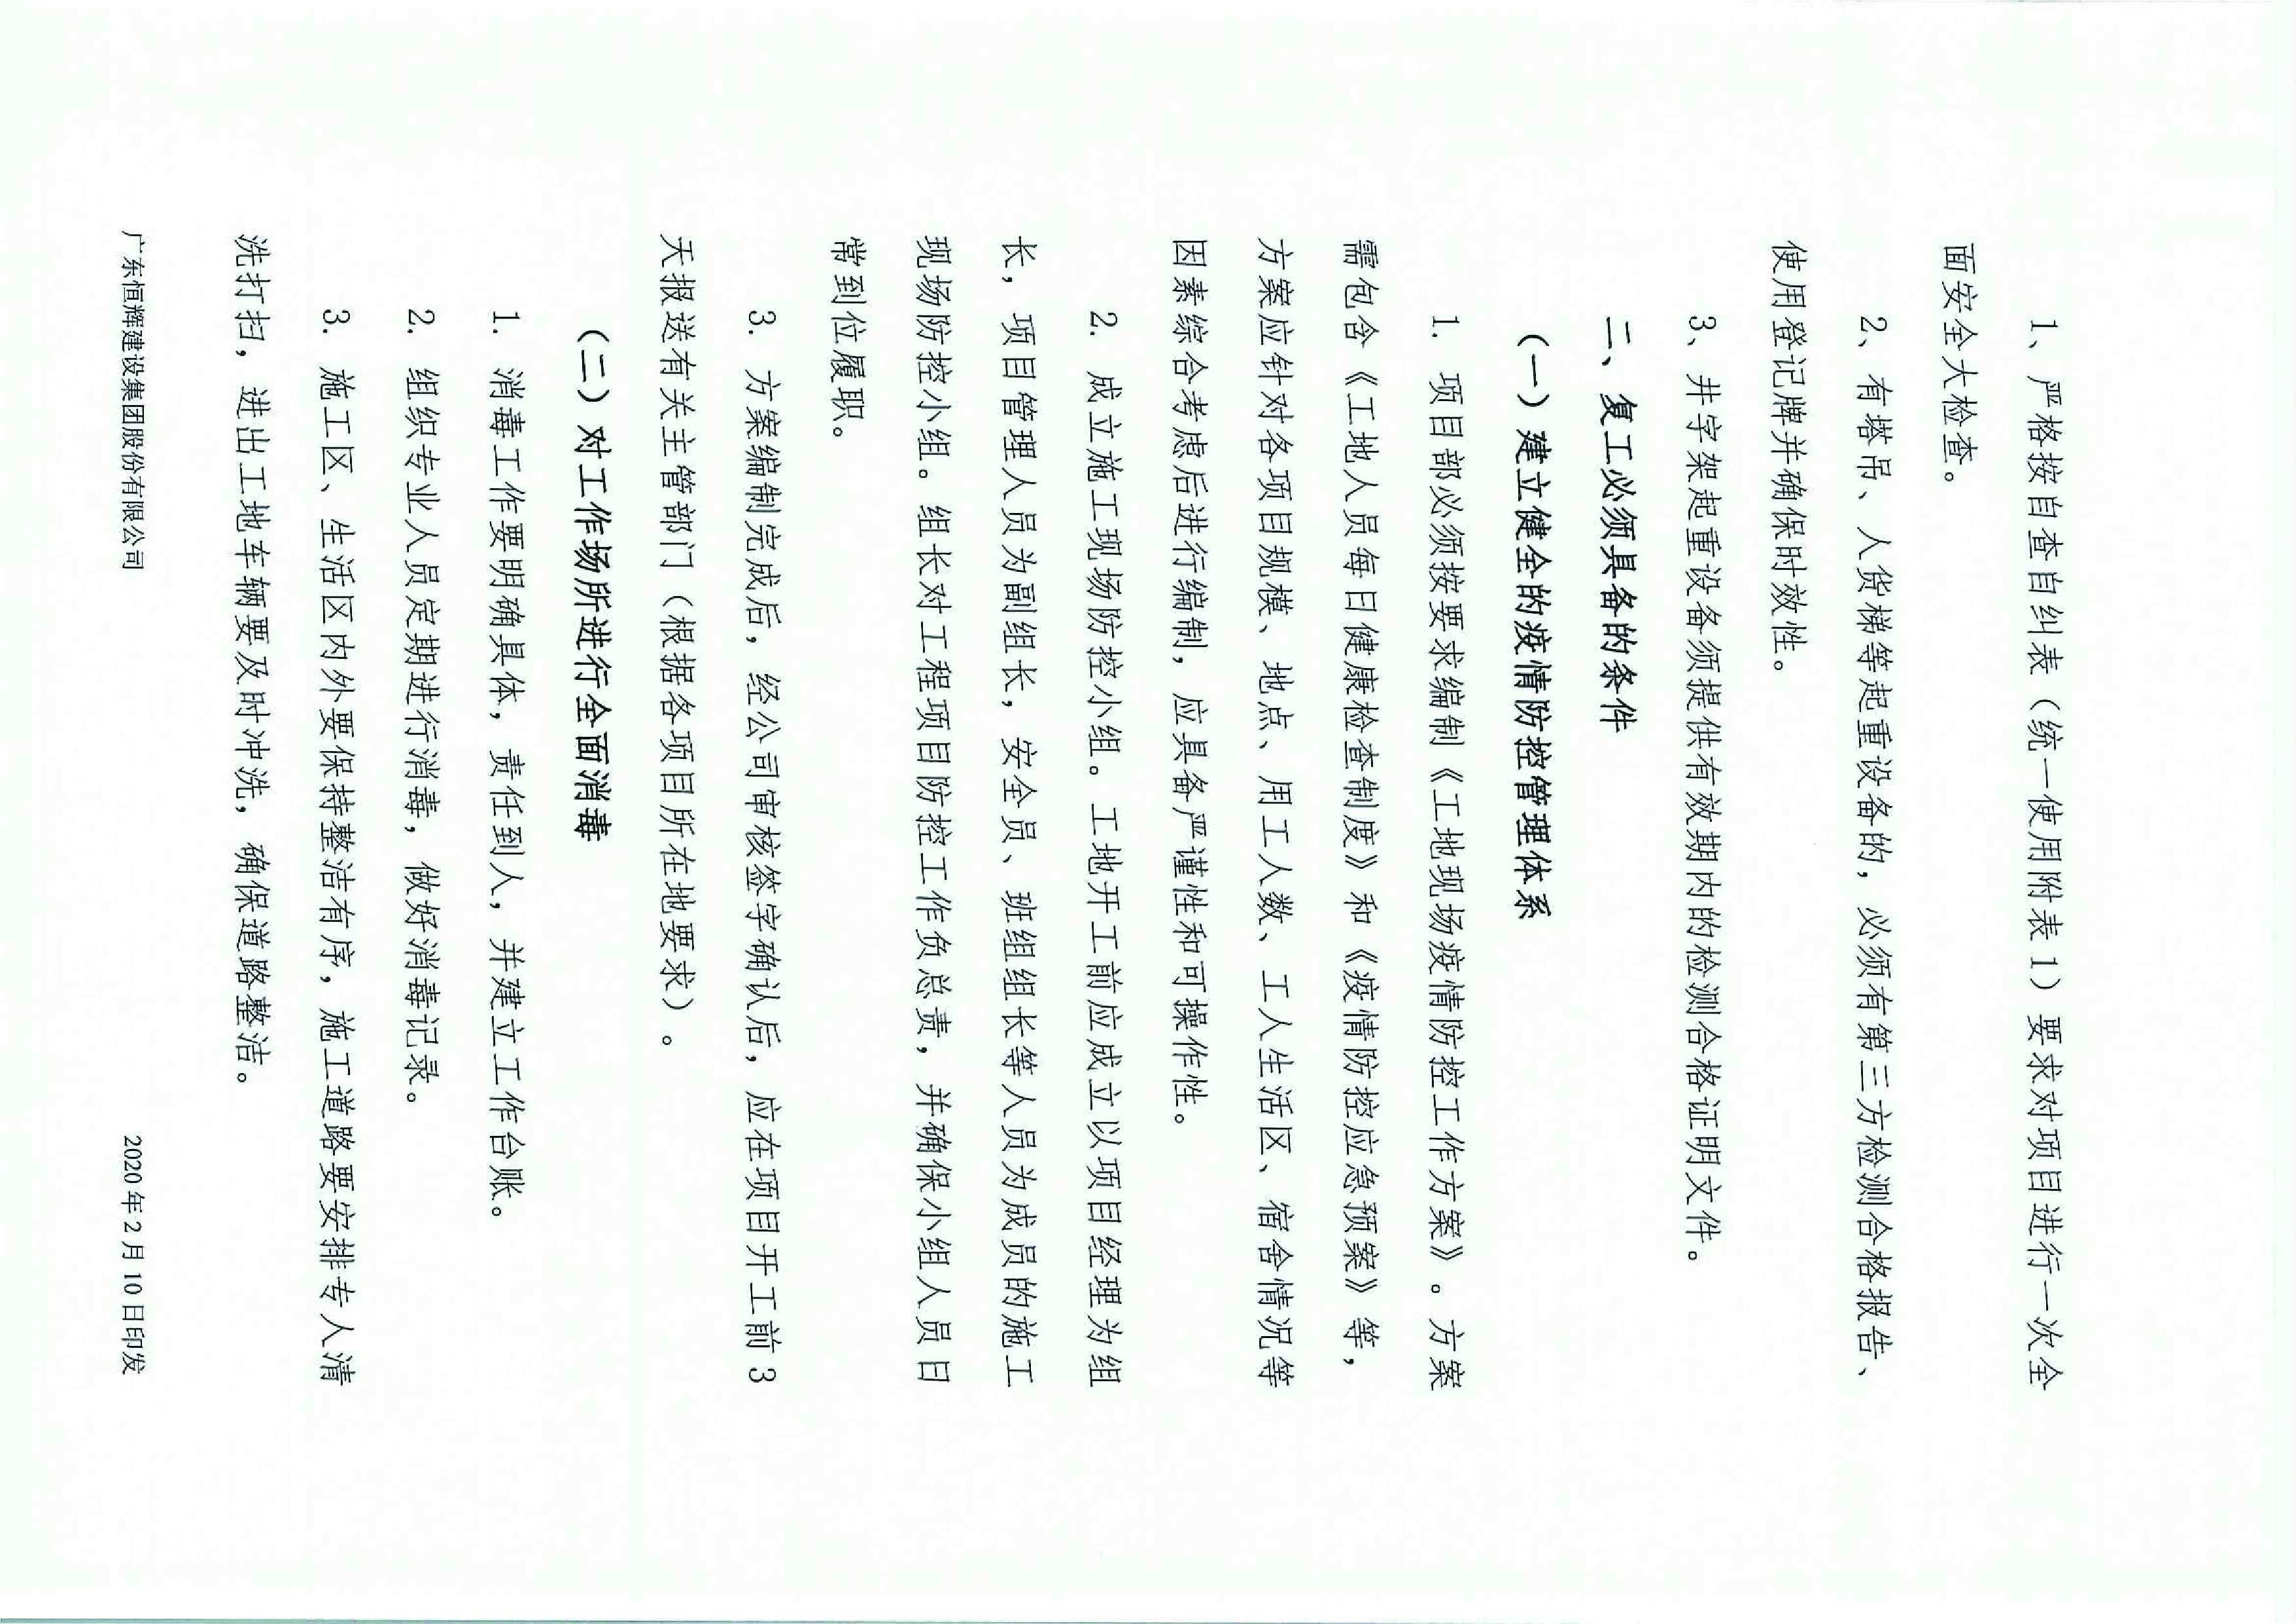 1、严格按自查自纠表（统一使用附表 1）要求对项目进行一次全
面安全大检查。
2、有塔吊、人货梯等起重设备的，必须有第三方检测合格报告、
使用登记牌并确保时效性。
3、井字架起重设备须提供有效期内的检测合格证明文件。
二、复工必须具备的条件
（一）建立健全的疫情防控管理体系
1. 项目部必须按要求编制《工地现场疫情防控工作方案》。方案
需包含《工地人员每日健康检查制度》和《疫情防控应急预案》等，
方案应针对各项目规模、地点、用工人数、工人生活区、宿舍情况等
因素综合考虑后进行编制，应具备严谨性和可操作性。
2. 成立施工现场防控小组。工地开工前应成立以项目经理为组
长，项目管理人员为副组长，安全员、班组组长等人员为成员的施工
现场防控小组。组长对工程项目防控工作负总责，并确保小组人员日
常到位履职。
3. 方案编制完成后，经公司审核签字确认后，应在项目开工前 3
天报送有关主管部门（根据各项目所在地要求）。
（二）对工作场所进行全面消毒
1. 消毒工作要明确具体，责任到人，并建立工作台账。
2. 组织专业人员定期进行消毒，做好消毒记录。
3. 施工区、生活区内外要保持整洁有序，施工道路要安排专人清
洗打扫，进出工地车辆要及时冲洗，确保道路整洁。
广东恒辉建设集团股份有限公司 2020 年 2 月 10 日印发